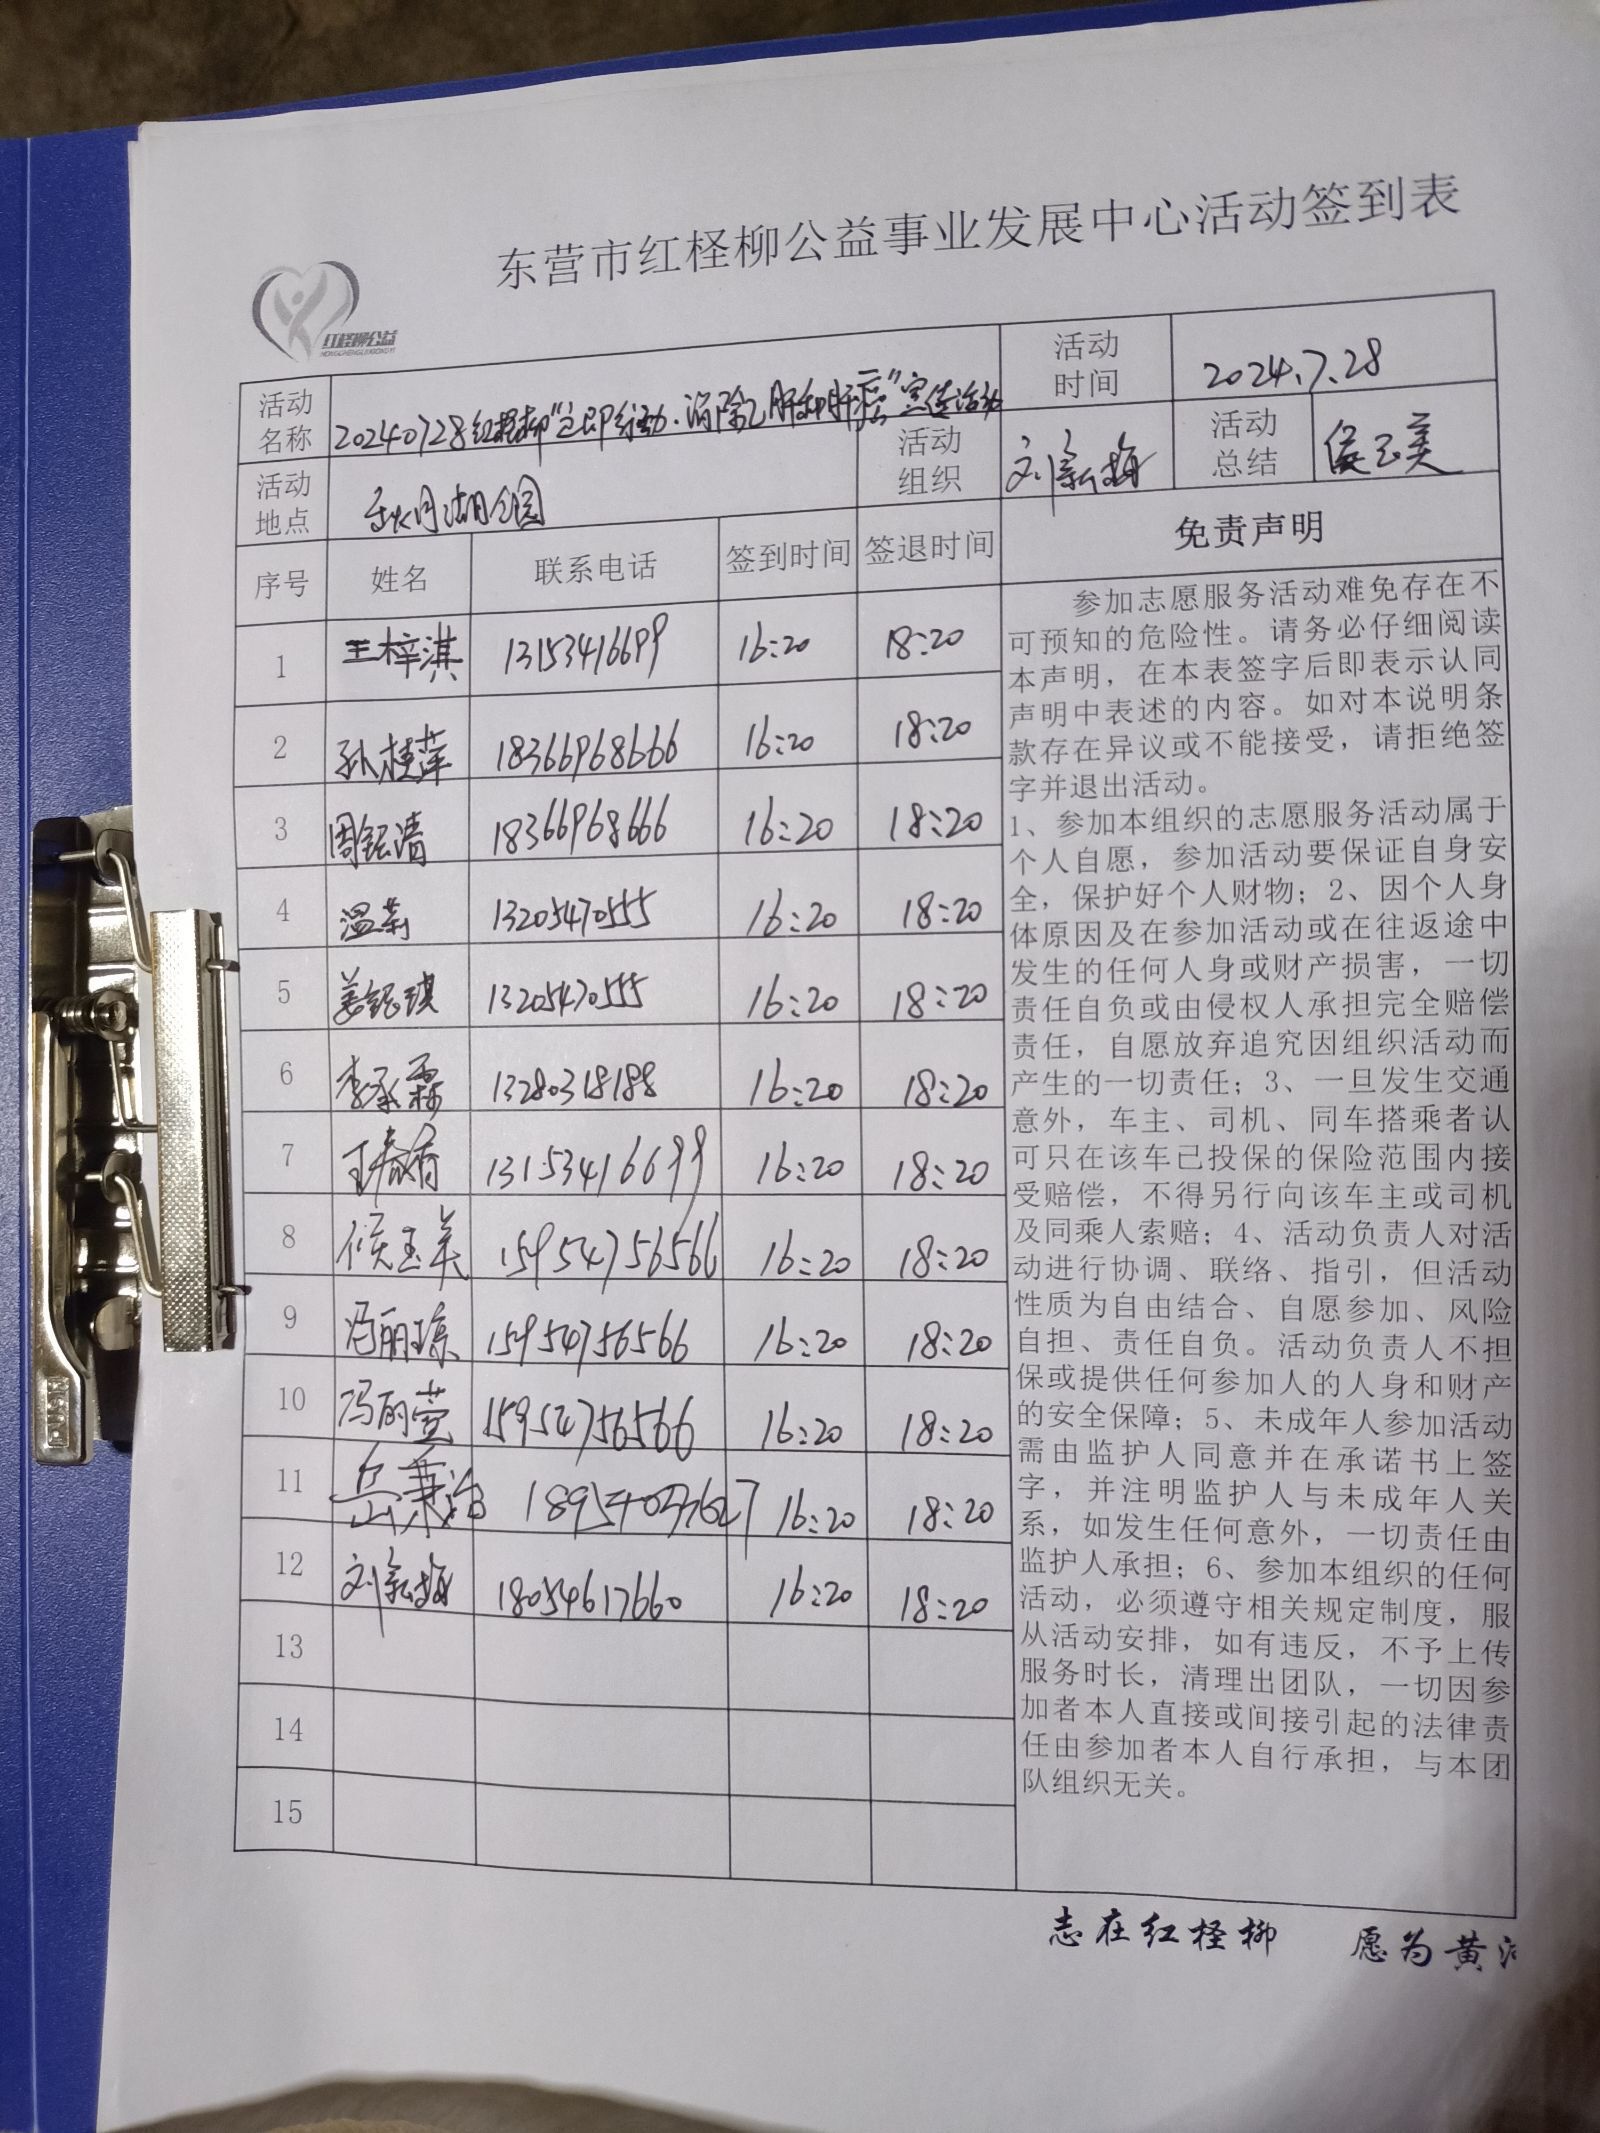 东营市红柽柳公益事业发展中心活动签到表
红柽柳公益
活动名称 20240728红柽柳“立即行动·消除乙肝和肝癌”宣传活动 活动时间 2024.7.28
活动地点 月湖公园 活动组织 刘 梅 活动总结 侯玉美
序号 姓名 联系电话 签到时间 签退时间 免责声明
1 王梓淇 13153416699 16:20 18:20
2 孙桂萍 18366968666 16:20 18:20
3 周 清 18366968666 16:20 18:20
4 温莉 13205470555 16:20 18:20
5 姜 琪 13205470555 16:20 18:20
6 李承霖 13280318188 16:20 18:20
7 王春香 13153416699 16:20 18:20
8 侯玉美 15954756566 16:20 18:20
9 冯丽琼 15954756566 16:20 18:20
10 冯丽萱 15954756566 16:20 18:20
11 岳秉 16:20 18:20
12 刘 梅 18054617660 16:20 18:20
13
14
15
参加志愿服务活动难免存在不
可预知的危险性。请务必仔细阅读
本声明，在本表签字后即表示认同
声明中表述的内容。如对本说明条
款存在异议或不能接受，请拒绝签
字并退出活动。
1、参加本组织的志愿服务活动属于
个人自愿，参加活动要保证自身安
全，保护好个人财物；2、因个人身
体原因及在参加活动或在往返途中
发生的任何人身或财产损害，一切
责任自负或由侵权人承担完全赔偿
责任，自愿放弃追究因组织活动而
产生的一切责任；3、一旦发生交通
意外，车主、司机、同车搭乘者认
可只在该车已投保的保险范围内接
受赔偿，不得另行向该车主或司机
及同乘人索赔；4、活动负责人对活
动进行协调、联络、指引，但活动
性质为自由结合、自愿参加、风险
自担、责任自负。活动负责人不担
保或提供任何参加人的人身和财产
的安全保障；5、未成年人参加活动
需由监护人同意并在承诺书上签
字，并注明监护人与未成年人关
系，如发生任何意外，一切责任由
监护人承担；6、参加本组织的任何
活动，必须遵守相关规定制度，服
从活动安排，如有违反，不予上传
服务时长，清理出团队，一切因参
加者本人直接或间接引起的法律责
任由参加者本人自行承担，与本团
队组织无关。
志在红柽柳 愿为黄
PUSH